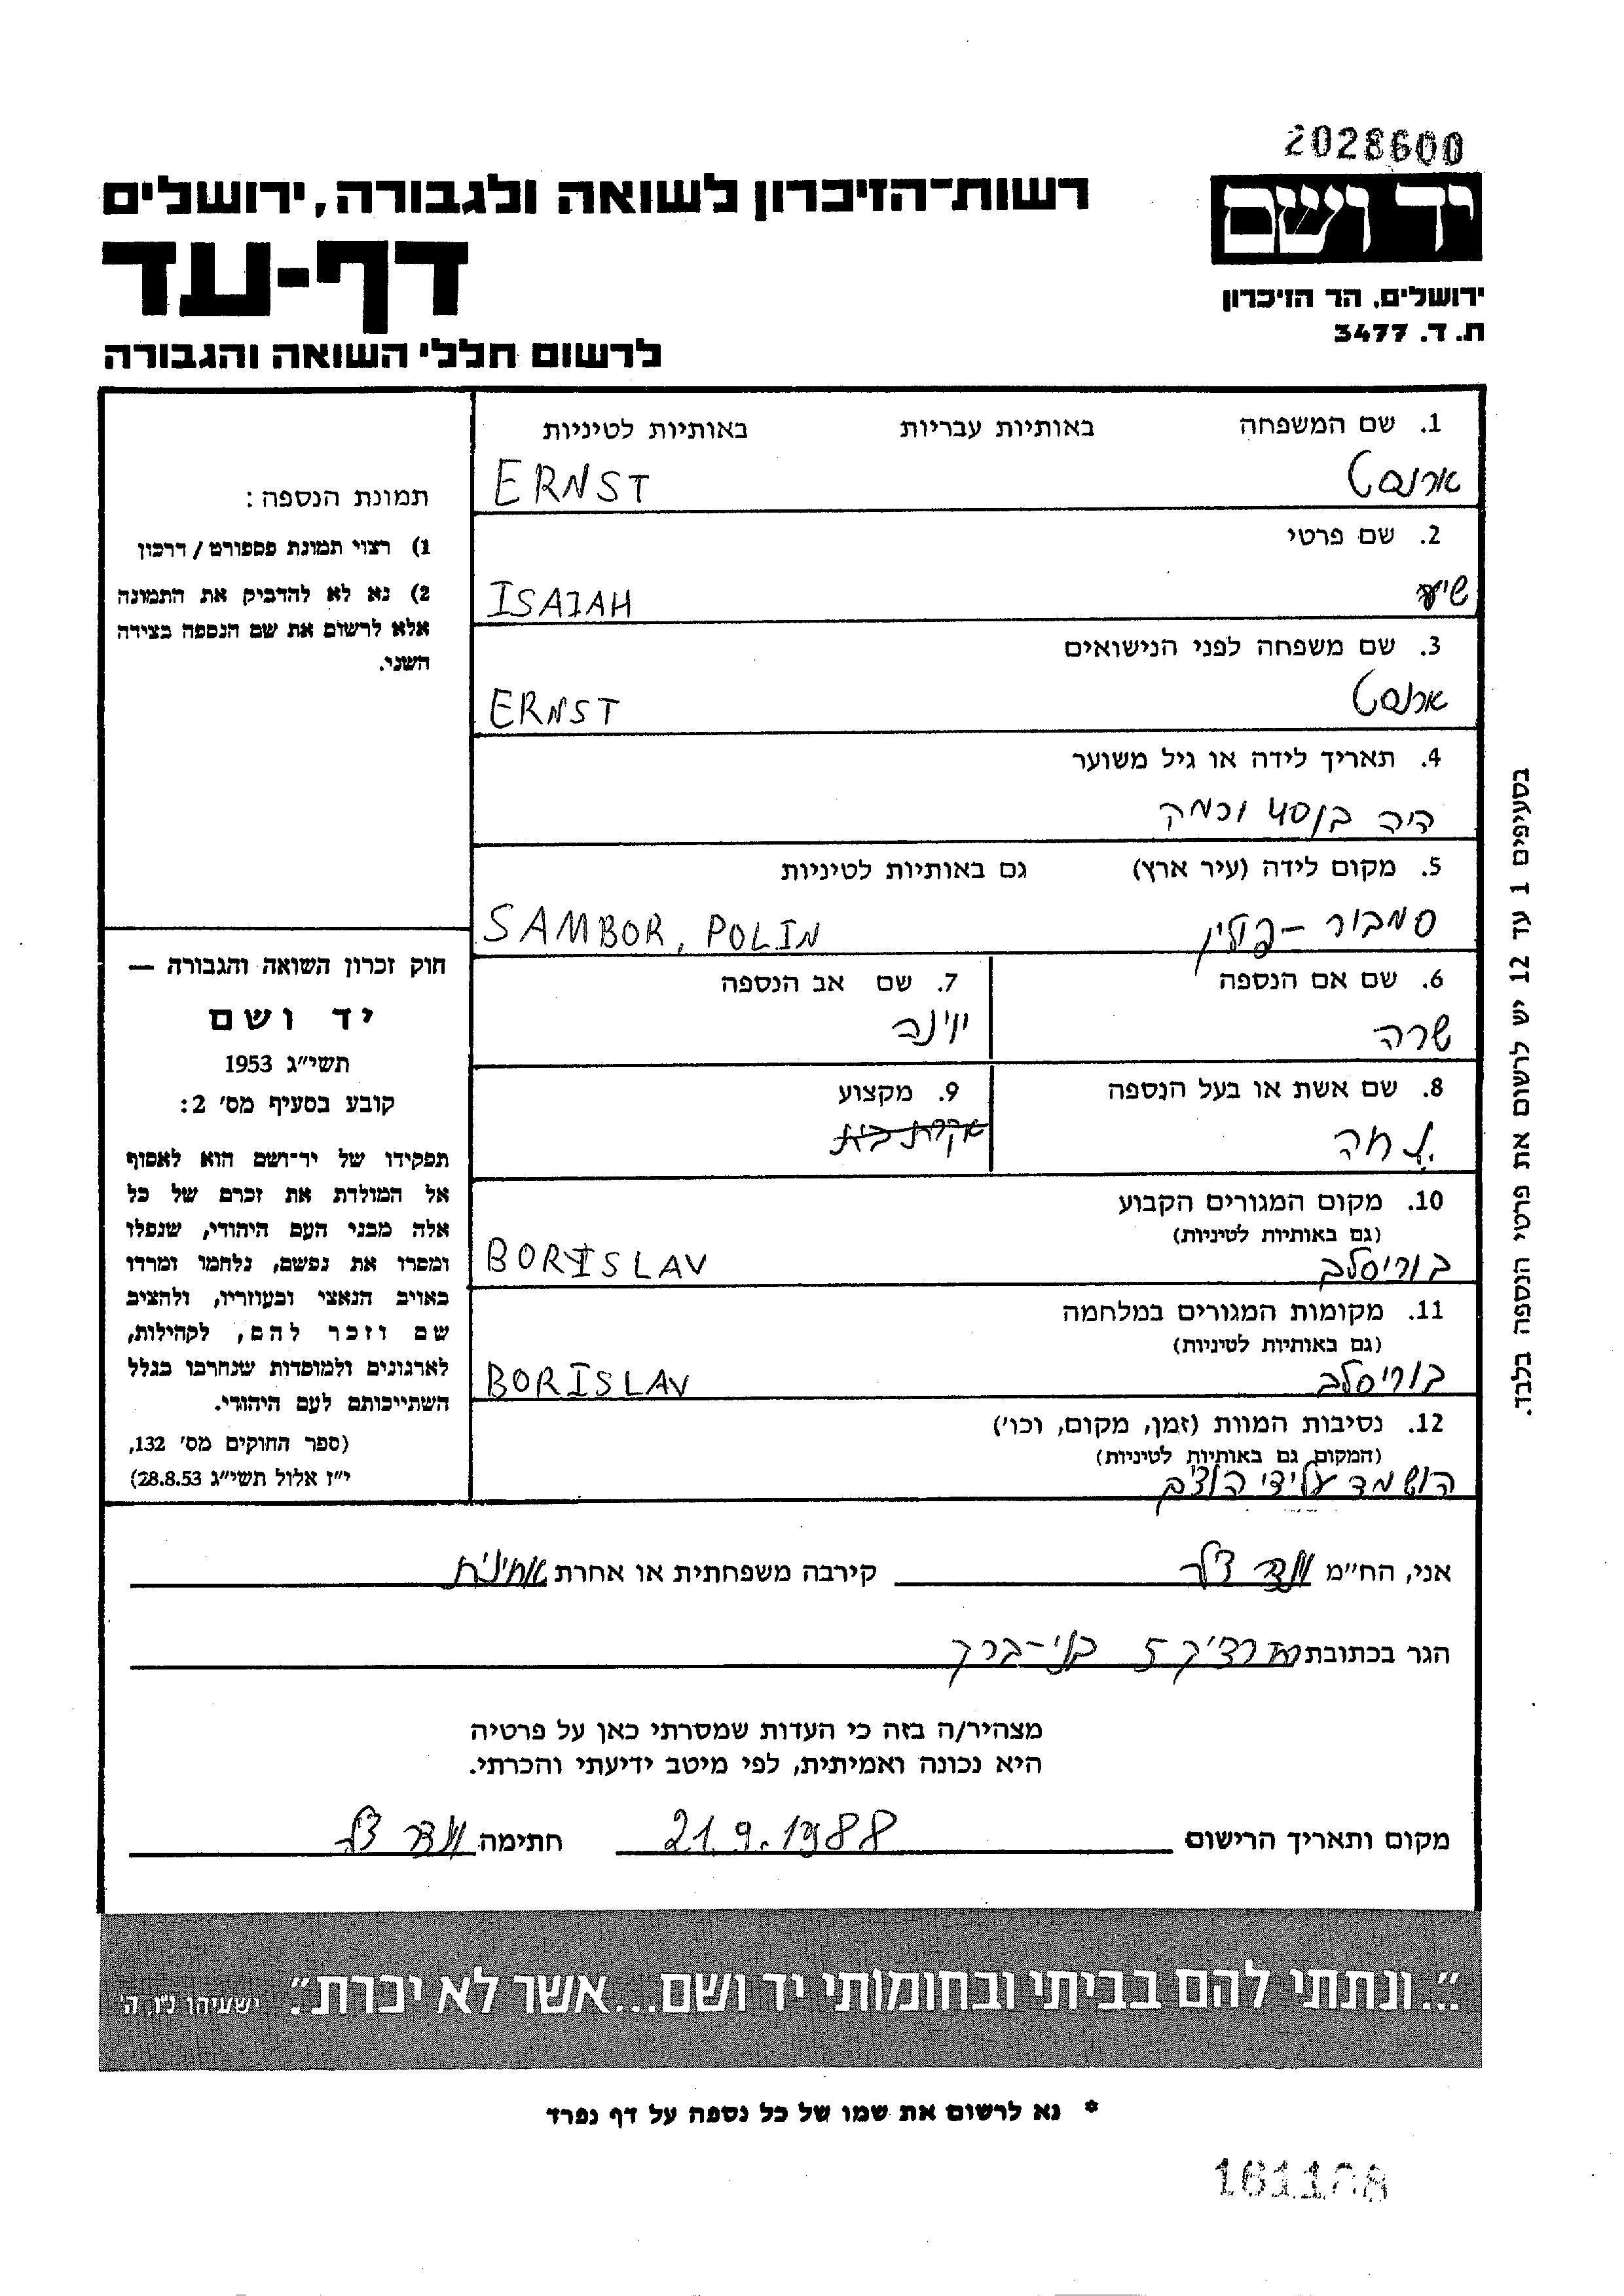 2028600
יד ושם
ירושלים, הר הזיכרון
ת. ד. 3477
רשות־הזיכרון לשואה ולגבורה, ירושלים
דף-עד
לרשום חללי השואה והגבורה
1. שם המשפחה באותיות עבריות באותיות לטיניות
ארנסט ERNST
2. שם פרטי
ISAIAH
3. שם משפחה לפני הנישואים
ארנסט ERNST
4. תאריך לידה או גיל משוער
היה בן 40
5. מקום לידה (עיר ארץ) גם באותיות לטיניות
סמבור - פולין SAMBOR, POLIN
6. שם אם הנספה
שרה
7. שם אב הנספה
8. שם אשת או בעל הנספה
9. מקצוע
עקרת בית
10. מקום המגורים הקבוע
(גם באותיות לטיניות)
בוריסלב BORISLAV
11. מקומות המגורים במלחמה
(גם באותיות לטיניות)
בוריסלב BORISLAV
12. נסיבות המוות (זמן, מקום, וכו')
(המקום גם באותיות לטיניות)
הושמד על ידי
תמונת הנספה:
1) רצוי תמונת פספורט / דרכון
2) נא לא להדביק את התמונה
אלא לרשום את שם הנספה בצידה
השני.
חוק זכרון השואה והגבורה —
יד ושם
תשי״ג 1953
קובע בסעיף מס׳ 2:
תפקידו של יד־ושם הוא לאסוף
אל המולדת את זכרם של כל
אלה מבני העם היהודי, שנפלו
ומסרו את נפשם, נלחמו ומרדו
באויב הנאצי ובעוזריו, ולהציב
שם וזכר להם, לקהילות,
לארגונים ולמוסדות שנחרבו בגלל
השתייכותם לעם היהודי.
(ספר החוקים מס׳ 132,
י״ז אלול תשי״ג 28.8.53)
בסעיפים 1 עד 12 יש לרשום את פרטי הנספה בלבד.
אני, הח״מ קירבה משפחתית או אחרת אחינית
הגר בכתובת 5 בני-ברק
מצהיר/ה בזה כי העדות שמסרתי כאן על פרטיה
היא נכונה ואמיתית, לפי מיטב ידיעתי והכרתי.
מקום ותאריך הרישום 21.9.1988 חתימה
״...ונתתי להם בביתי ובחומותי יד ושם...אשר לא יכרת״. ישעיהו נ״ו, ה׳
* נא לרשום את שמו של כל נספה על דף נפרד